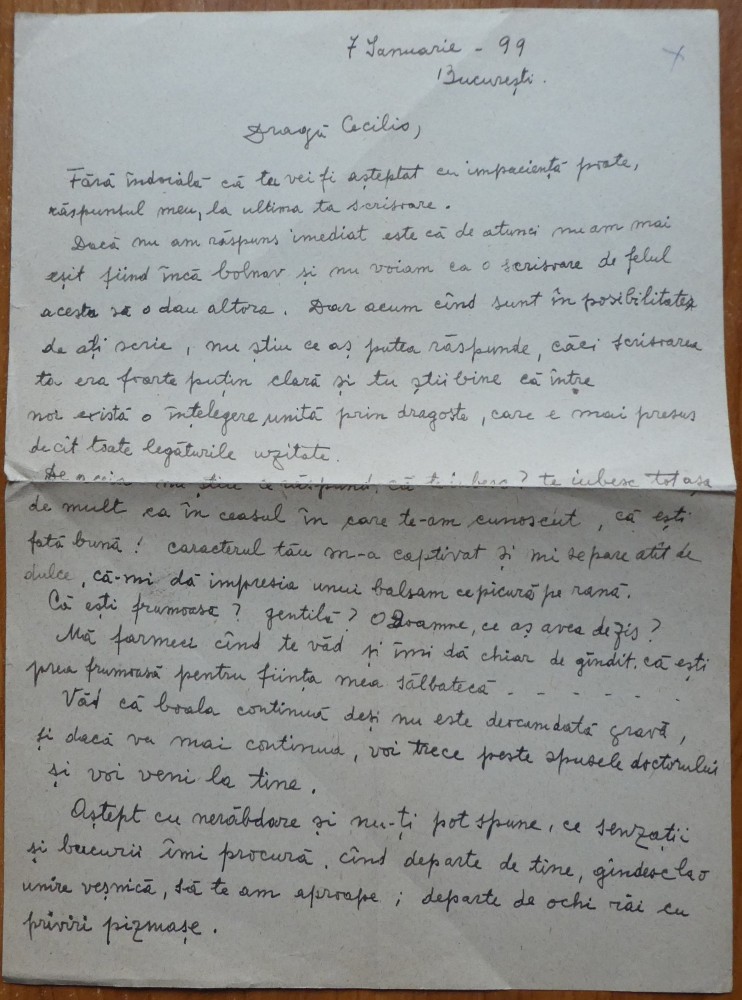 7 Ianuarie - 99
București.
Dragă Cecilio,
Fără îndoială că tu vei fi așteptat cu impaciență poate,
răspunsul meu, la ultima ta scrisoare.
Dacă nu am răspuns imediat este că de atunci nu am mai
eșit fiind încă bolnav și nu voiam ca o scrisoare de felul
acesta să o dau altora. Dar acum cînd sunt în posibilitatea
de ați scrie, nu știu ce aș putea răspunde, căci scrisoarea
ta era foarte puțin clară și tu știi bine că între
noi există o înțelegere unită prin dragoste, care e mai presus
decît toate legăturile uzitate.
nu știu ce răspund, că te iubesc? te iubesc tot așa
de mult ca în ceasul în care te-am cunoscut, că ești
fată bună! caracterul tău m-a captivat și mi se pare atît de
dulce, că-mi dă impresia unui balsam ce picură pe rană.
Că ești frumoasă? gentilă? O Doamne, ce aș avea de zis?
Mă farmeci cînd te văd și îmi dă chiar de gîndit, că ești
prea frumoasă pentru ființa mea sălbatecă - - - - - -
Văd că boala continuă deși nu este deocamdată gravă,
și dacă va mai continua, voi trece peste spusele doctorului
și voi veni la tine.
Aștept cu nerăbdare și nu-ți pot spune, ce senzații
și bucurii îmi procură, cînd departe de tine, gîndesc la o
unire veșnică, să te am aproape; departe de ochi răi cu
priviri pizmașe.